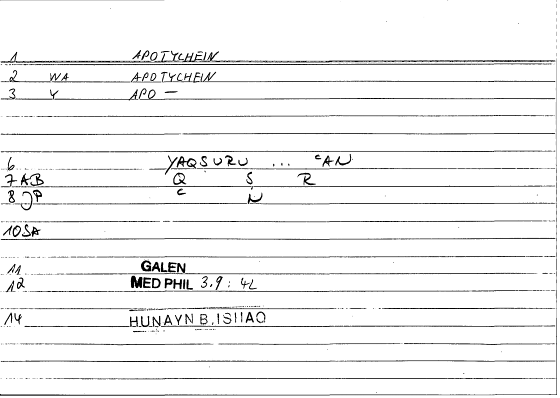 1 APOTYCHEIN
2 WA APOTYCHEIN
3 Y APO —
6 YAQSURU ... ʿAN
7 AB Q S R
8 JP ʿ N
10 SA
11 GALEN
12 MED PHIL 3.9 : 4L
14 HUNAYN B. ISHAQ